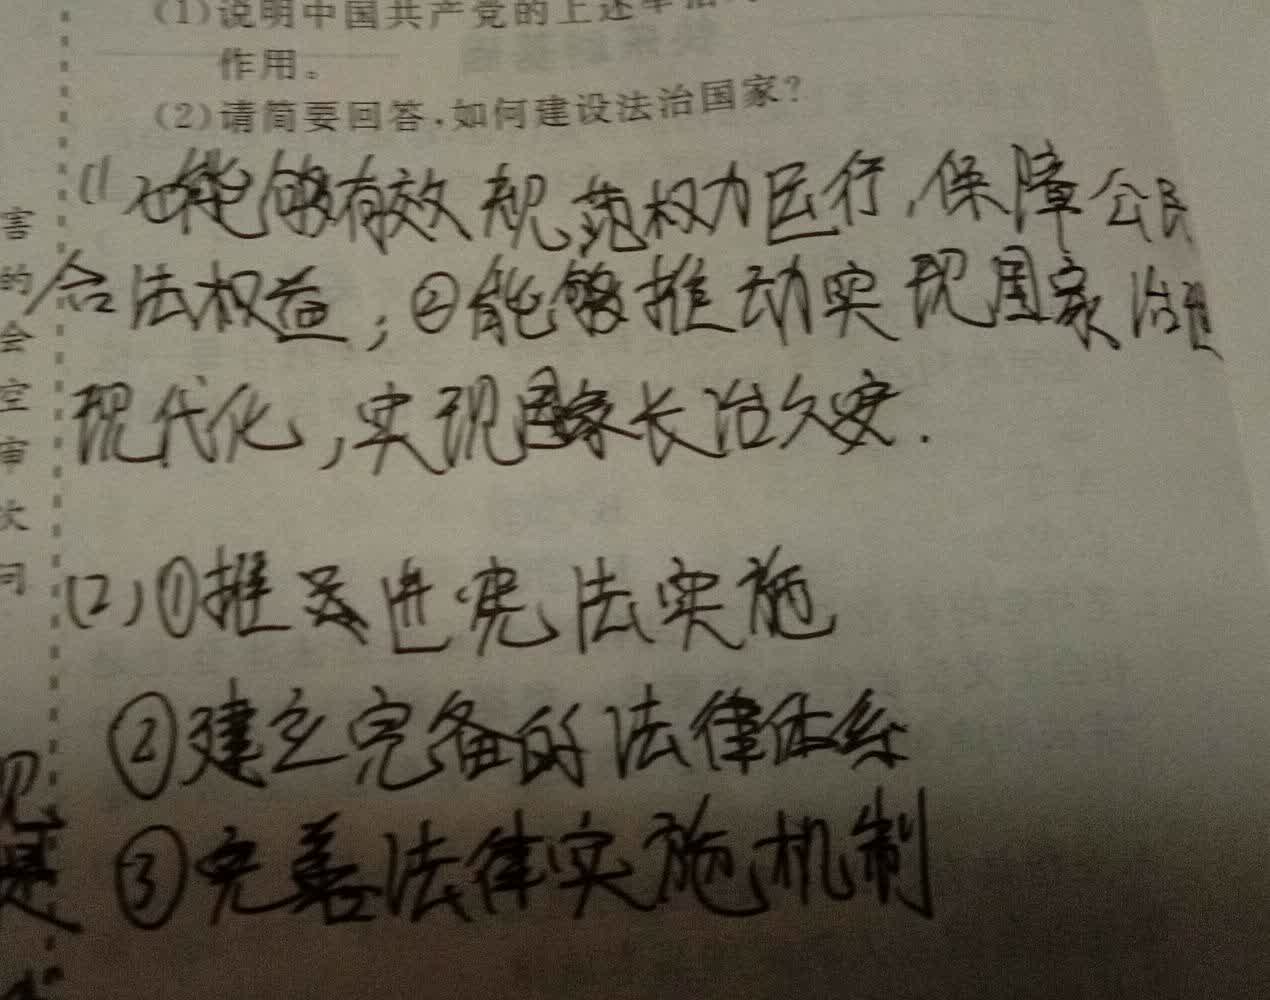 (1)说明中国共产党的上述举措
作用。
(2)请简要回答,如何建设法治国家?
(1 能够有效规范权力运行,保障公民
合法权益;②能够推动实现国家治理
现代化,实现国家长治久安.
(2)①推进宪法实施
②建立完备的法律体系
③完善法律实施机制
害
的
会
空
审
大
司